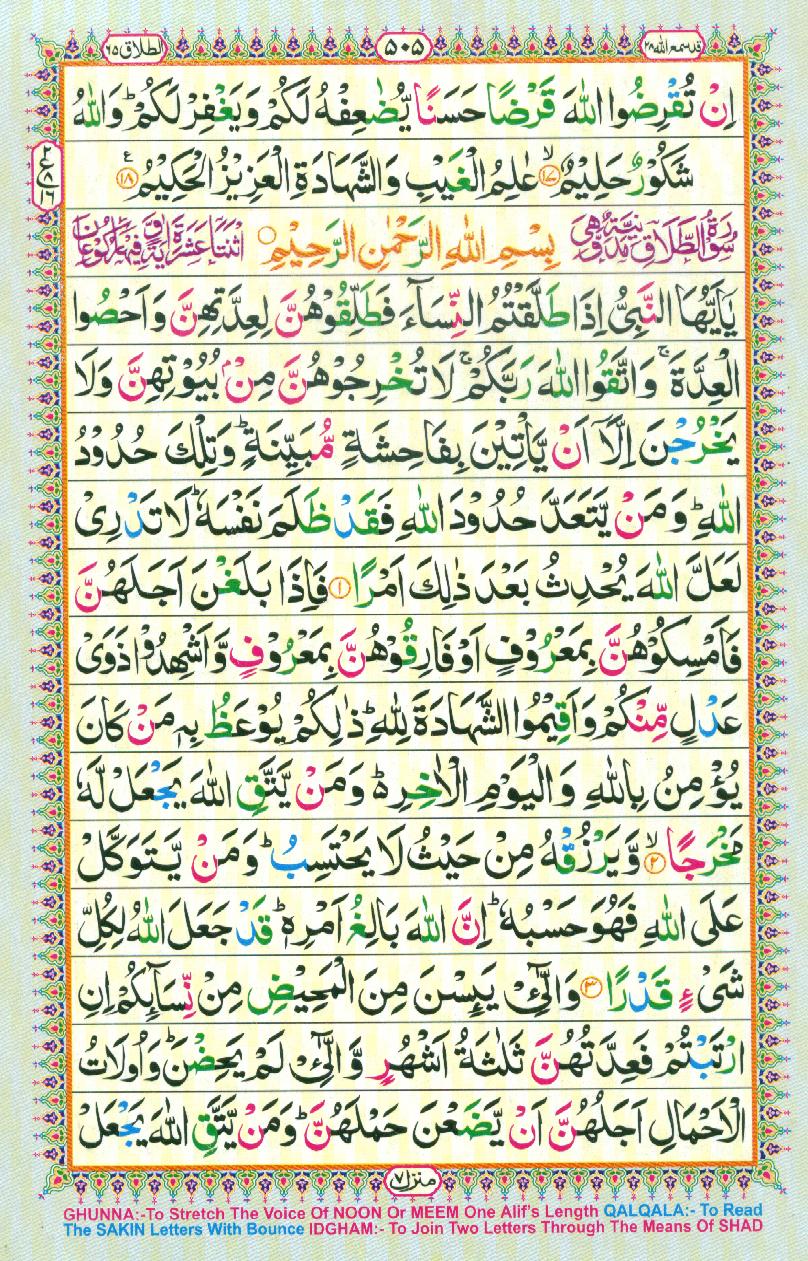 قد سمع الله ٢٨ ٥٠٥ الطلاق ٦٥
اِنْ تُقْرِضُوا اللّٰهَ قَرْضًا حَسَنًا يُّضٰعِفْهُ لَكُمْ وَيَغْفِرْ لَكُمْ ؕ وَاللّٰهُ
شَكُوْرٌ حَلِيْمٌ ۙ﴿۱۷﴾ عٰلِمُ الْغَيْبِ وَالشَّهَادَةِ الْعَزِيْزُ الْحَكِيْمُ ﴿۱۸﴾
ع ٢ ٨ ١٦
سُوْرَةُ الطَّلَاقِ مَدَنِيَّةٌ وَّهِيَ بِسْمِ اللّٰهِ الرَّحْمٰنِ الرَّحِيْمِ اثْنَتَا عَشْرَةَ اٰيَةً وَّفِيْهَا رُكُوْعَانِ
يٰۤاَيُّهَا النَّبِىُّ اِذَا طَلَّقْتُمُ النِّسَآءَ فَطَلِّقُوْهُنَّ لِعِدَّتِهِنَّ وَاَحْصُوا
الْعِدَّةَ ۚ وَاتَّقُوا اللّٰهَ رَبَّكُمْ ۚ لَا تُخْرِجُوْهُنَّ مِنْۢ بُيُوْتِهِنَّ وَلَا
يَخْرُجْنَ اِلَّاۤ اَنْ يَّاْتِيْنَ بِفَاحِشَةٍ مُّبَيِّنَةٍ ؕ وَتِلْكَ حُدُوْدُ
اللّٰهِ ؕ وَمَنْ يَّتَعَدَّ حُدُوْدَ اللّٰهِ فَقَدْ ظَلَمَ نَفْسَهٗ ؕ لَا تَدْرِىْ
لَعَلَّ اللّٰهَ يُحْدِثُ بَعْدَ ذٰلِكَ اَمْرًا ﴿۱﴾ فَاِذَا بَلَغْنَ اَجَلَهُنَّ
فَاَمْسِكُوْهُنَّ بِمَعْرُوْفٍ اَوْ فَارِقُوْهُنَّ بِمَعْرُوْفٍ وَّاَشْهِدُوْا ذَوَىْ
عَدْلٍ مِّنْكُمْ وَاَقِيْمُوا الشَّهَادَةَ لِلّٰهِ ؕ ذٰلِكُمْ يُوْعَظُ بِهٖ مَنْ كَانَ
يُؤْمِنُ بِاللّٰهِ وَالْيَوْمِ الْاٰخِرِ ؕ۬ وَمَنْ يَّتَّقِ اللّٰهَ يَجْعَلْ لَّهٗ
مَخْرَجًا ۙ﴿۲﴾ وَّيَرْزُقْهُ مِنْ حَيْثُ لَا يَحْتَسِبُ ؕ وَمَنْ يَّتَوَكَّلْ
عَلَى اللّٰهِ فَهُوَ حَسْبُهٗ ؕ اِنَّ اللّٰهَ بَالِغُ اَمْرِهٖ ؕ قَدْ جَعَلَ اللّٰهُ لِكُلِّ
شَىْءٍ قَدْرًا ﴿۳﴾ وَالّٰٓـىٴِْ يَٮِٕسْنَ مِنَ الْمَحِيْضِ مِنْ نِّسَآٮِٕكُمْ اِنِ
ارْتَبْتُمْ فَعِدَّتُهُنَّ ثَلٰثَةُ اَشْهُرٍ وَّالّٰٓـىٴِْ لَمْ يَحِضْنَ ؕ وَاُولَاتُ
الْاَحْمَالِ اَجَلُهُنَّ اَنْ يَّضَعْنَ حَمْلَهُنَّ ؕ وَمَنْ يَّتَّقِ اللّٰهَ يَجْعَلْ
منزل ٧
GHUNNA:-To Stretch The Voice Of NOON Or MEEM One Alif's Length QALQALA:- To Read
The SAKIN Letters With Bounce IDGHAM:- To Join Two Letters Through The Means Of SHAD